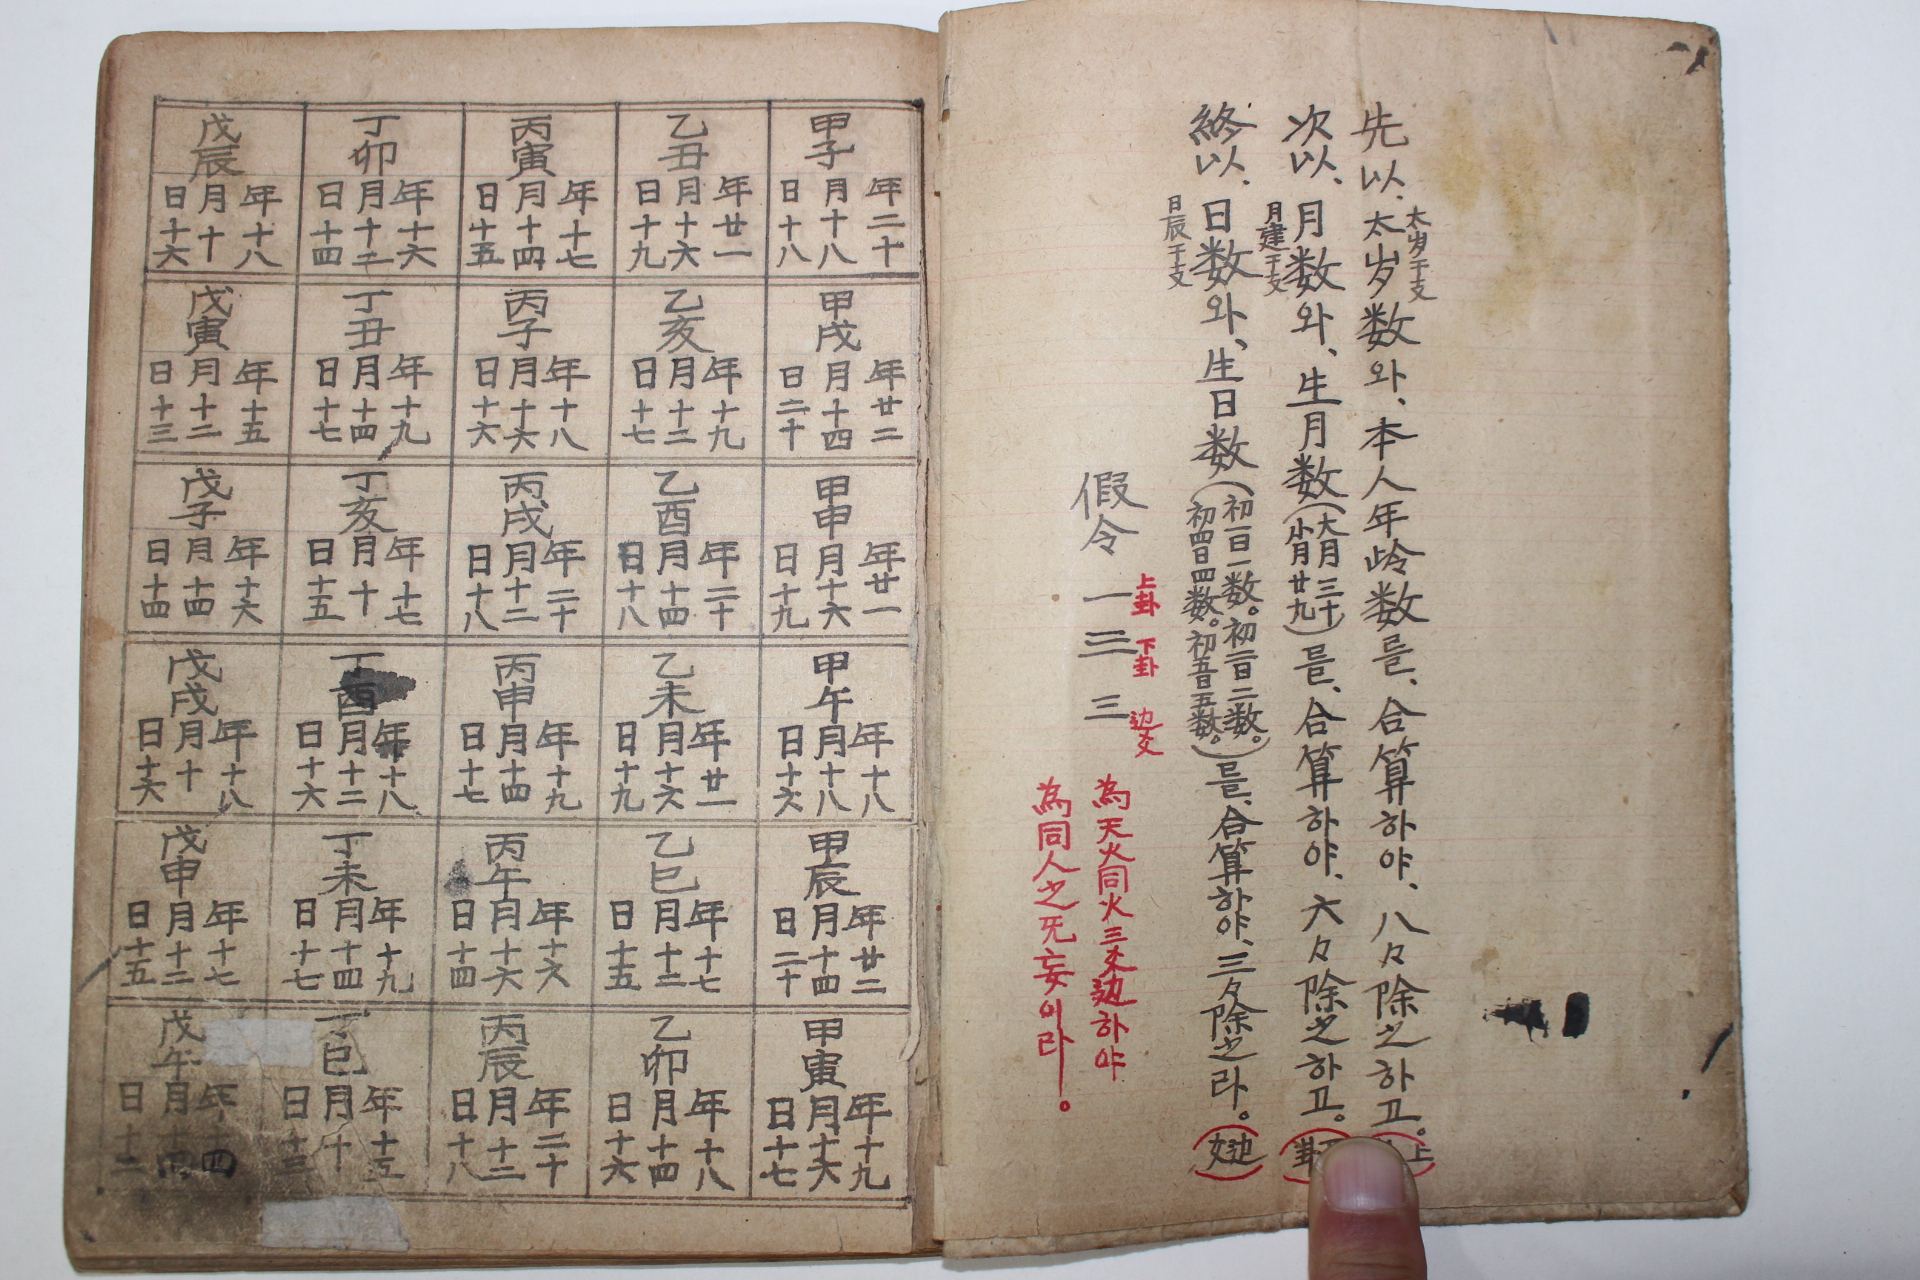 先以、太岁数와、本人年岭数를、合算하야、八々除之하고。
太岁干支
上
次以、月数와、生月数(大月三十 小月廿九)를、合算하야、六々除之하고。
月建干支
卦
終以、日数와、生日数(初一日一数。初二日二数。初四日四数。初五日五数。)를、合算하야、三々除之라。
日辰干支
假令 一 三 三
上卦 下卦 边爻
為天火同火三爻边하야
為同人之旡妄이라。
甲子 年二十 月十八 日十八
乙丑 年廿一 月十六 日十九
丙寅 年十七 月十四 日十五
丁卯 年十六 月十二 日十四
戊辰 年十八 月十 日十六
甲戌 年廿二 月十四 日二十
乙亥 年十九 月十二 日十七
丙子 年十八 月十六 日十六
丁丑 年十九 月十四 日十七
戊寅 年十五 月十二 日十三
甲申 年廿一 月十六 日十九
乙酉 年二十 月十四 日十八
丙戌 年二十 月十二 日十八
丁亥 年十七 月十 日十五
戊子 年十六 月十四 日十四
甲午 年十八 月十八 日十六
乙未 年廿一 月十六 日十九
丙申 年十九 月十四 日十七
丁酉 年十八 月十二 日十六
戊戌 年十八 月十 日十六
甲辰 年廿二 月十四 日二十
乙巳 年十七 月十二 日十五
丙午 年十六 月十六 日十四
丁未 年十九 月十四 日十七
戊申 年十七 月十二 日十五
甲寅 年十九 月十六 日十七
乙卯 年十八 月十四 日十六
丙辰 年二十 月十二 日十八
丁巳 年十五 月十 日十三
戊午 年十四 月十四 日十二